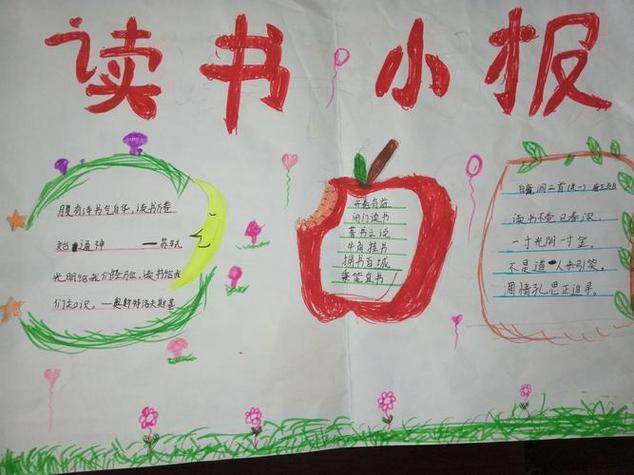 读书小报
腹有诗书气自华,读书万卷
始通神 ——苏轼
光明给我们经验,读书给我
们知识。——奥斯特洛夫斯基
开卷有益
闭门读书
著书立说
牛角挂书
拥书百城
笔直书
白鹿洞二首(其一)
读书不觉已春深,
一寸光阴一寸金。
不是道人来引笑,
周情孔思正追寻。